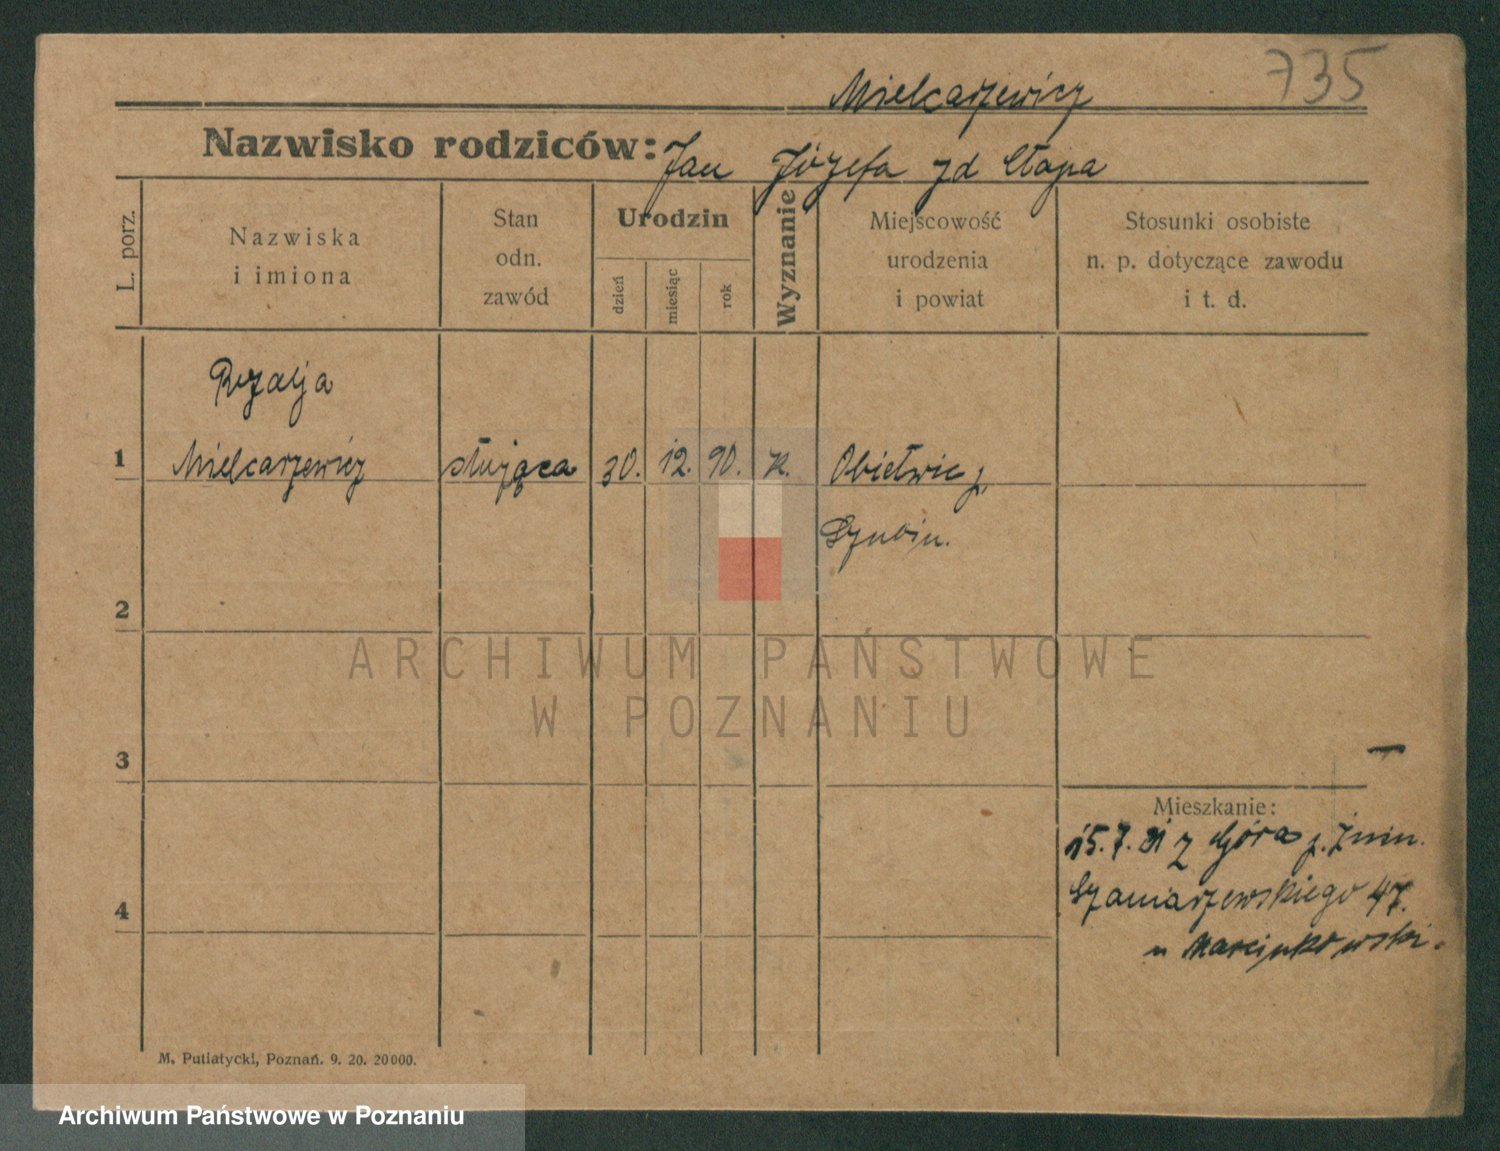 735
Mielcarzewicz
Nazwisko rodziców: Jan Józefa zd Cłapa
L. porz.
Nazwiska
i imiona
Stan
odn.
zawód
Urodzin
dzień
miesiąc
rok
Wyznanie
Miejscowość
urodzenia
i powiat
Stosunki osobiste
n. p. dotyczące zawodu
i t. d.
Rozalja
1 Mielcarzewicz służąca 30. 12. 90. K.
2
3
4
Mieszkanie:
15.7.31 z Góra p. Żnin.
47.
u Marcinkowski.
M. Putiatycki, Poznań. 9. 20. 20000.
ARCHIWUM PAŃSTWOWE
W POZNANIU
Archiwum Państwowe w Poznaniu